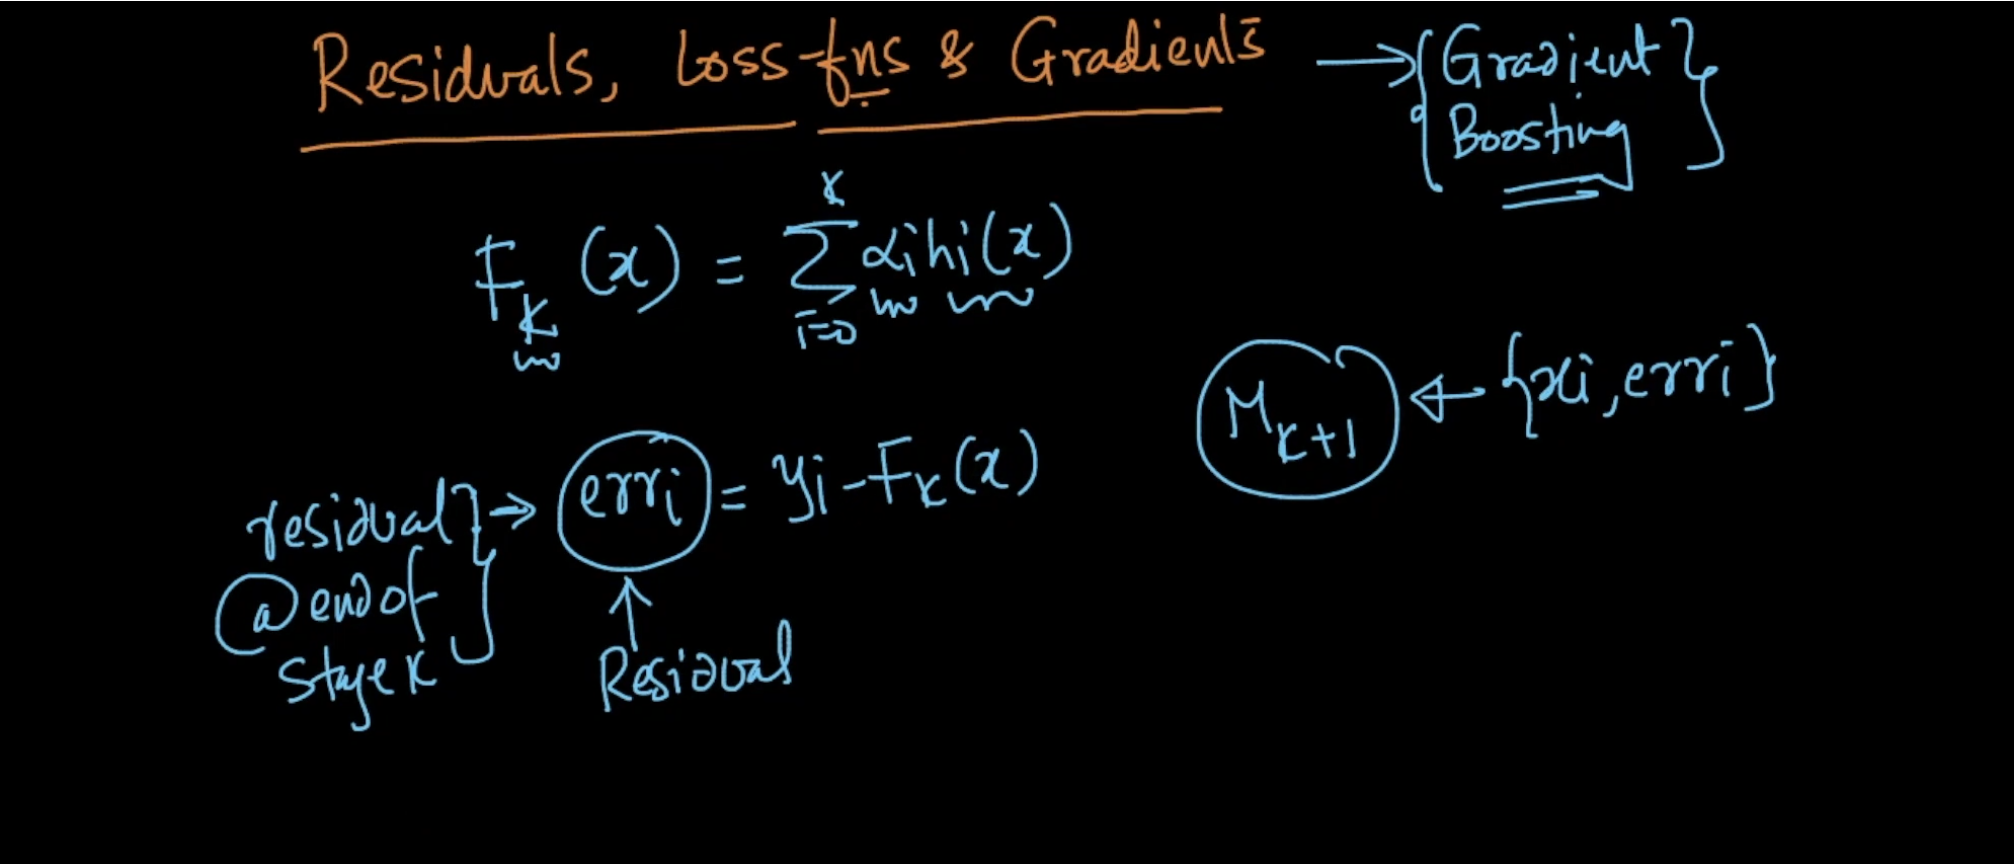 Residuals, Loss-fns & Gradients → {Gradient Boosting}
F_k (x) = Σ_{i=0}^{k} αi hi(x)
M_{k+1} ← {xi, erri}
residual @ end of stage k } → erri = yi - F_k(x)
↑
Residual